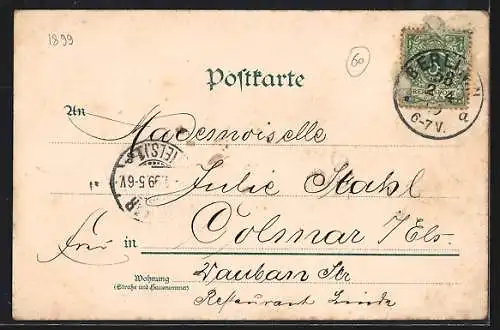 1899
60
Postkarte
BERLIN N
58
2 4
6-7 V.
a
REICHSPOST
An Mademoiselle
(ELS)1
99.5-6V.
Julie Stahl
in Colmar / Els.
Wohnung Vauban Str
(Straße und Hausnummer)
Restaurant Linde